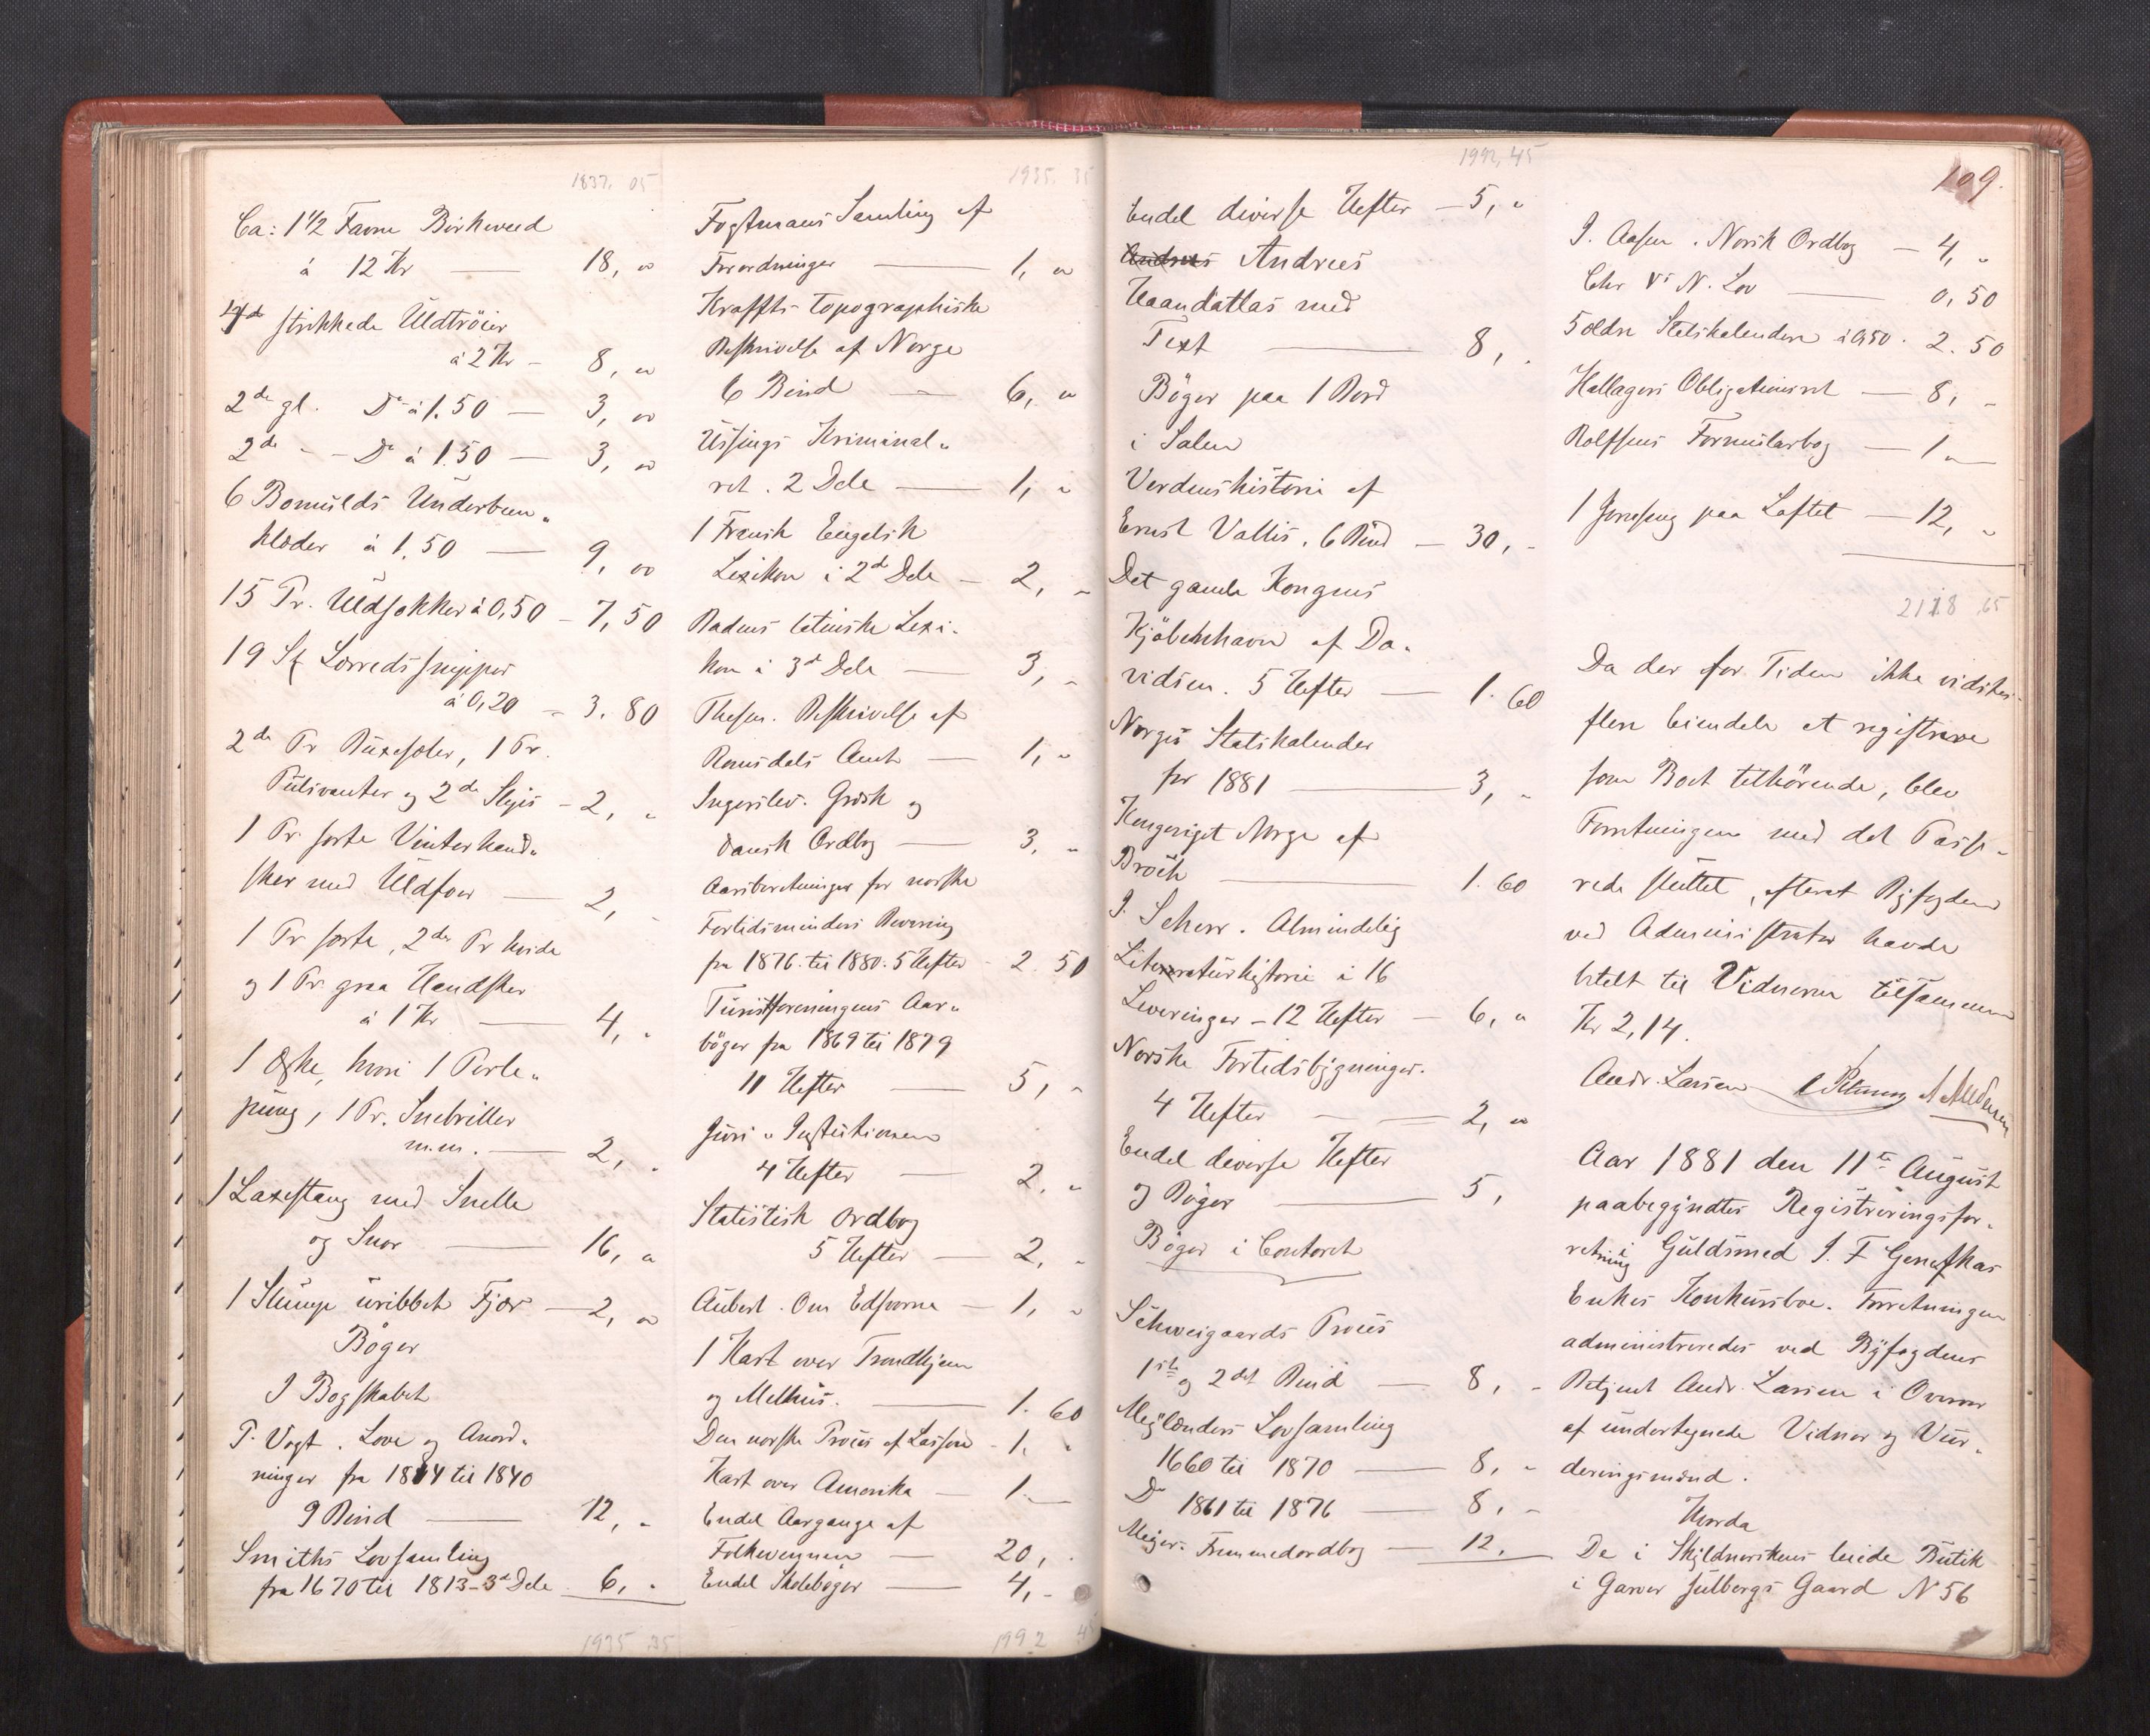 1837, 05
Ca: 1 1/2 Favne Birkeved
à 12 Kr — 18, "
4de strikkede Uldtröier
à 2 Kr — 8, "
2de gl. Do à 1.50 — 3, "
2de " — Do à 1.50 — 3, "
6 Bomulds Underben-
klæder à 1.50 — 9, "
15 Pr. Uldsokker à 0,50 — 7,50
19 St Lærredssnipper
à 0,20 — 3.80
2de Pr Buxesæler, 1 Pr.
Pulsvanter og 2de Slips — 2, "
1 Pr. sorte Vinterhand-
sker med Uldfoer — 2, "
1 Pr sorte, 2de Pr hvide
og 1 Pr. graa Handsker
à 1 Kr — 4, "
1 Æske, hvori 1 Perle-
pung, 1 Pr. Snebriller
m.m. — 2, "
1 Laxestang med Snelle
og Snor — 16, "
1 Slump uribbet Fjær — 2, "
Bøger
I Bogskabet
P. Vogt. Love og Anord-
ninger fra 1814 til 1840
9 Bind — 12, "
Smiths Lovsamling
fra 1670 til 1813 – 3de Dele 6, "
1935 35
1935. 35
Fogtmans Samling af
Forordninger — 1, "
Kraffts topographiske
Beskrivelse af Norge
6 Bind — 6, "
Ussings Kriminal-
ret. 2 Dele — 1, "
1 Fransk Engelsk
Lexikon i 2de Dele — 2, "
Badens latinske Lexi-
kon i 3de Dele — 3, "
Thesen. Beskrivelse af
Romsdals Amt — 1, "
Ingerslev. Græsk og
dansk Ordbog — 3. "
Aarsberetninger for norske
Fortidsminders Bevaring
fra 1876 til 1880. 5 Hefter — 2.50
Turistforeningens Aar-
bøger fra 1869 til 1879
11 Hefter — 5, "
Juri-Institutionen
4 Hefter — 2. "
Statistisk Ordbog
5 Hefter — 2, "
Aubert. Om Edsvorne — 1, "
1 Kart over Trondhjem
og Melhus. — 1.60
Den norske Proces af Lasson — 1. "
Kart over Amerika — 1. —
Endel Aargange af
Folkevennen — 20, "
Endel Skolebøger — 4, "
1992 45
1992, 45
Endel diverse Hefter — 5, "
Andrees Andrees
Haandatlas med
Text — 8, "
Bøger paa 1 Bord
i Salen
Verdenshistorie af
Ernst Vallis. 6 Bind — 30, "
Det gamle Kongens
Kjöbenhavn af Da-
vidsen. 5 Hefter — 1.60
Norges Statskalender
for 1881 — 3, "
Kongeriget Norge af
Broch — 1.60
J. Scherr. Almindelig
Literaturhistorie i 16
Leveringer – 12 Hefter — 6, "
Norske Fortidsbygninger.
4 Hefter — 2, "
Endel diverse Hefter
og Bøger — 5,
Bøger i Contoret
Schweigaards Proces
1ste og 2det Bind — 8, "
Mejlænders Lovsamling
1660 til 1870 — 8, "
Do 1861 til 1876 — 8, "
Meyer. Fremmedordbog — 12,
109.
I. Aasen. Norsk Ordbog — 4, "
Chr Vs N. Lov — 0,50
5 ældre Statskalendere à 0,50. 2.50
Hallagers Obligationsret — 8, "
Rolfsens Formularbog — 1 "
1 Jernseng paa Loftet — 12, "
2118 65
Da der for Tiden ikke vidstes
flere Eiendele at registrere
som Boet tilhörende, blev
Forretningen med det Passe-
rede sluttet, efterat Byfogden
ved Administrator havde
betalt til Vidnerne tilsammen
Kr 2,14.
Andr. Larsen
Aar 1881 den 11te August
paabegyndtes Registreringsfor-
retning i Guldsmed J. F.
Enkes Konkursboe. Forretningen
administreredes ved Byfogdens
Betjent Andr. Larsen i Overvær
af undertegnede Vidner og Vur-
deringsmænd.
De i Skyldnerskens leiede Butik
i Garver Gaard N 56